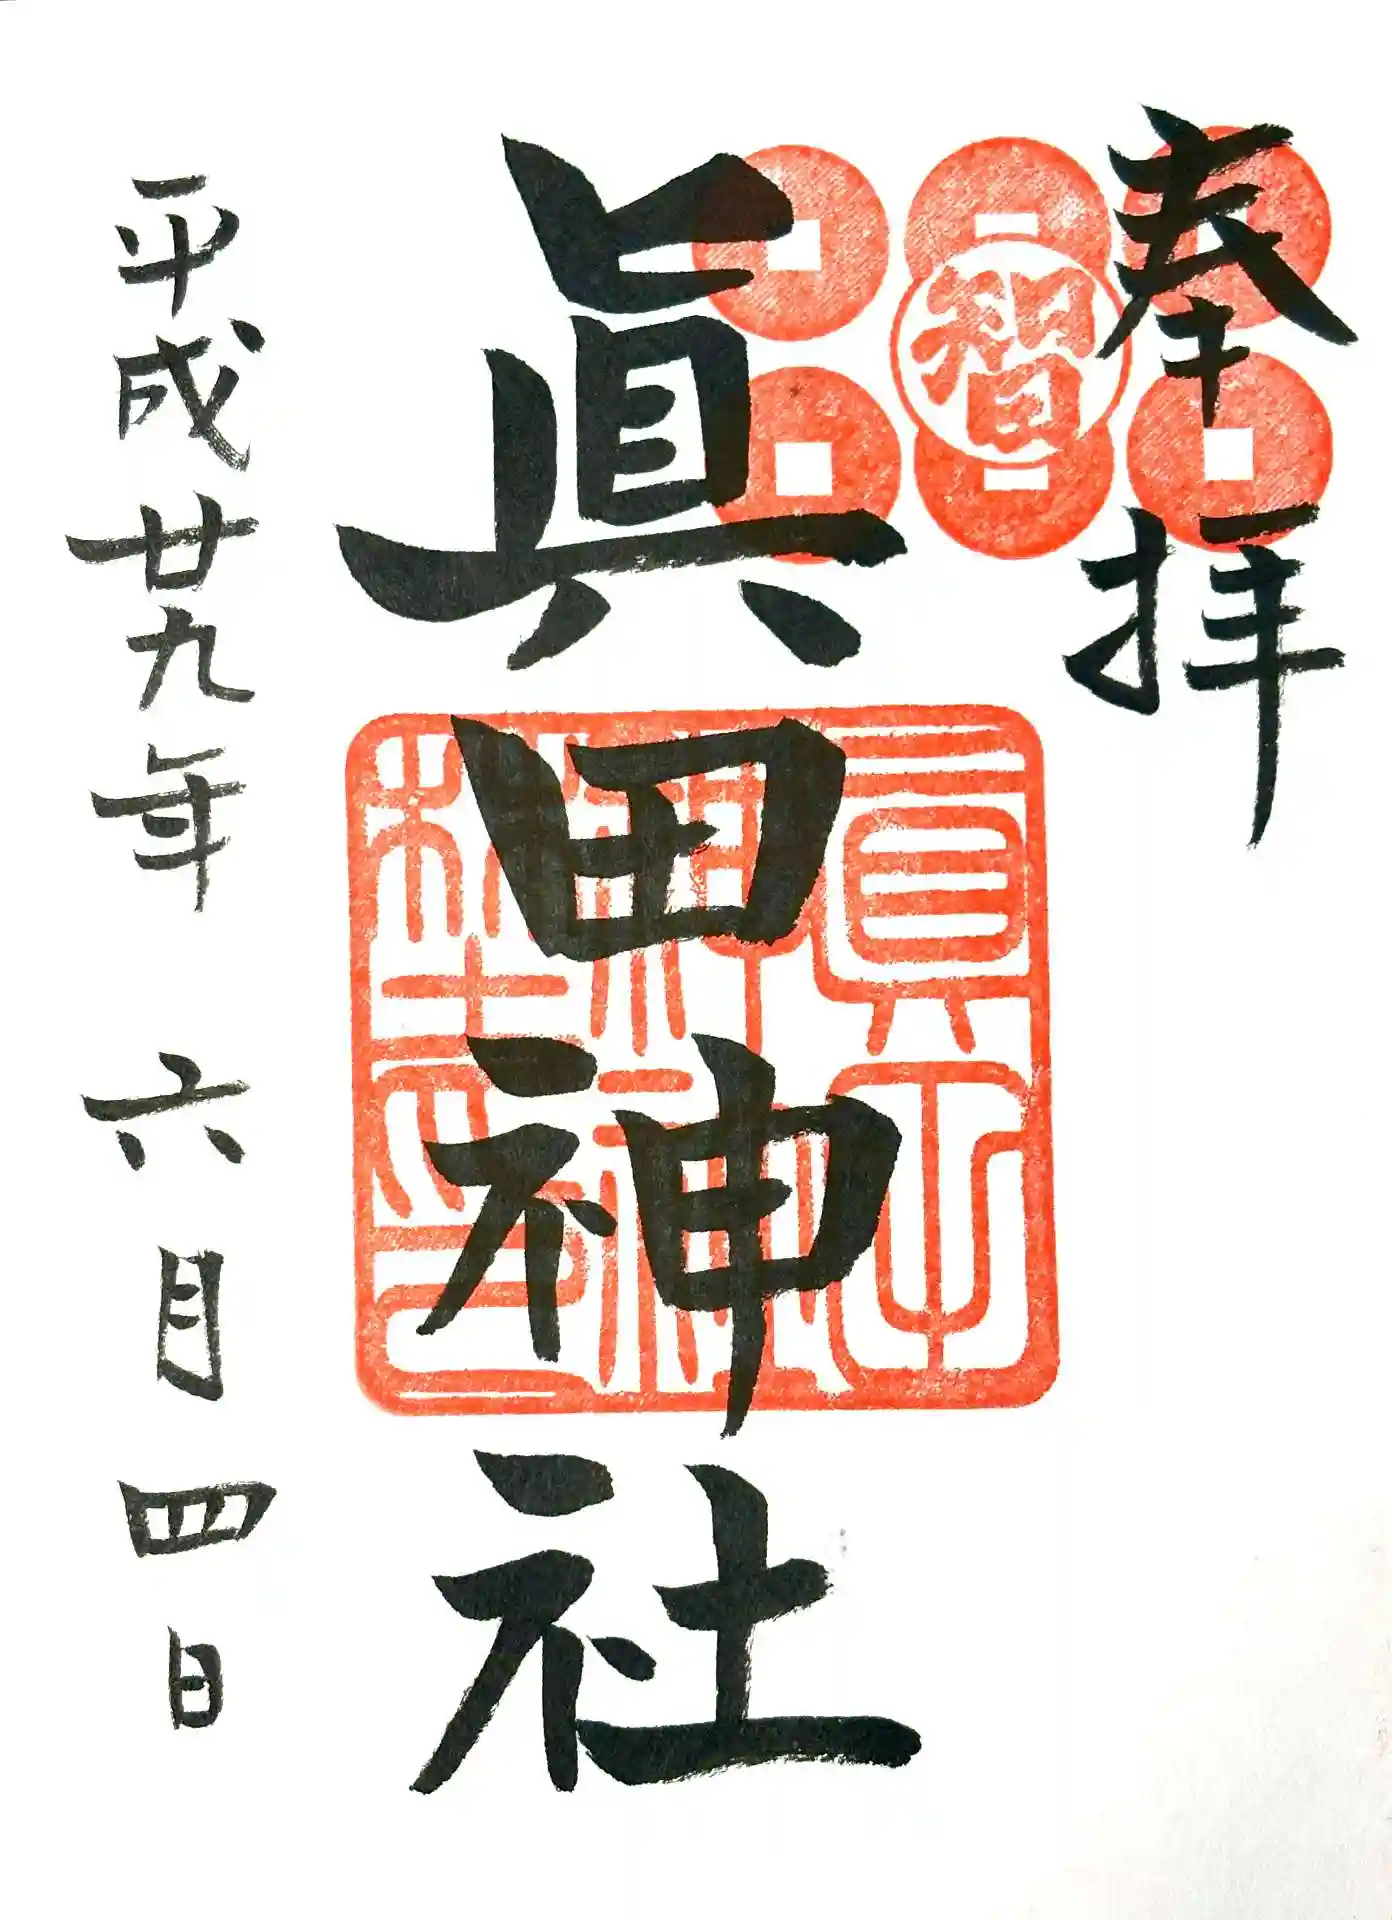 奉拝
智
眞田神社
眞田神社神社印
平成廿九年 六月四日